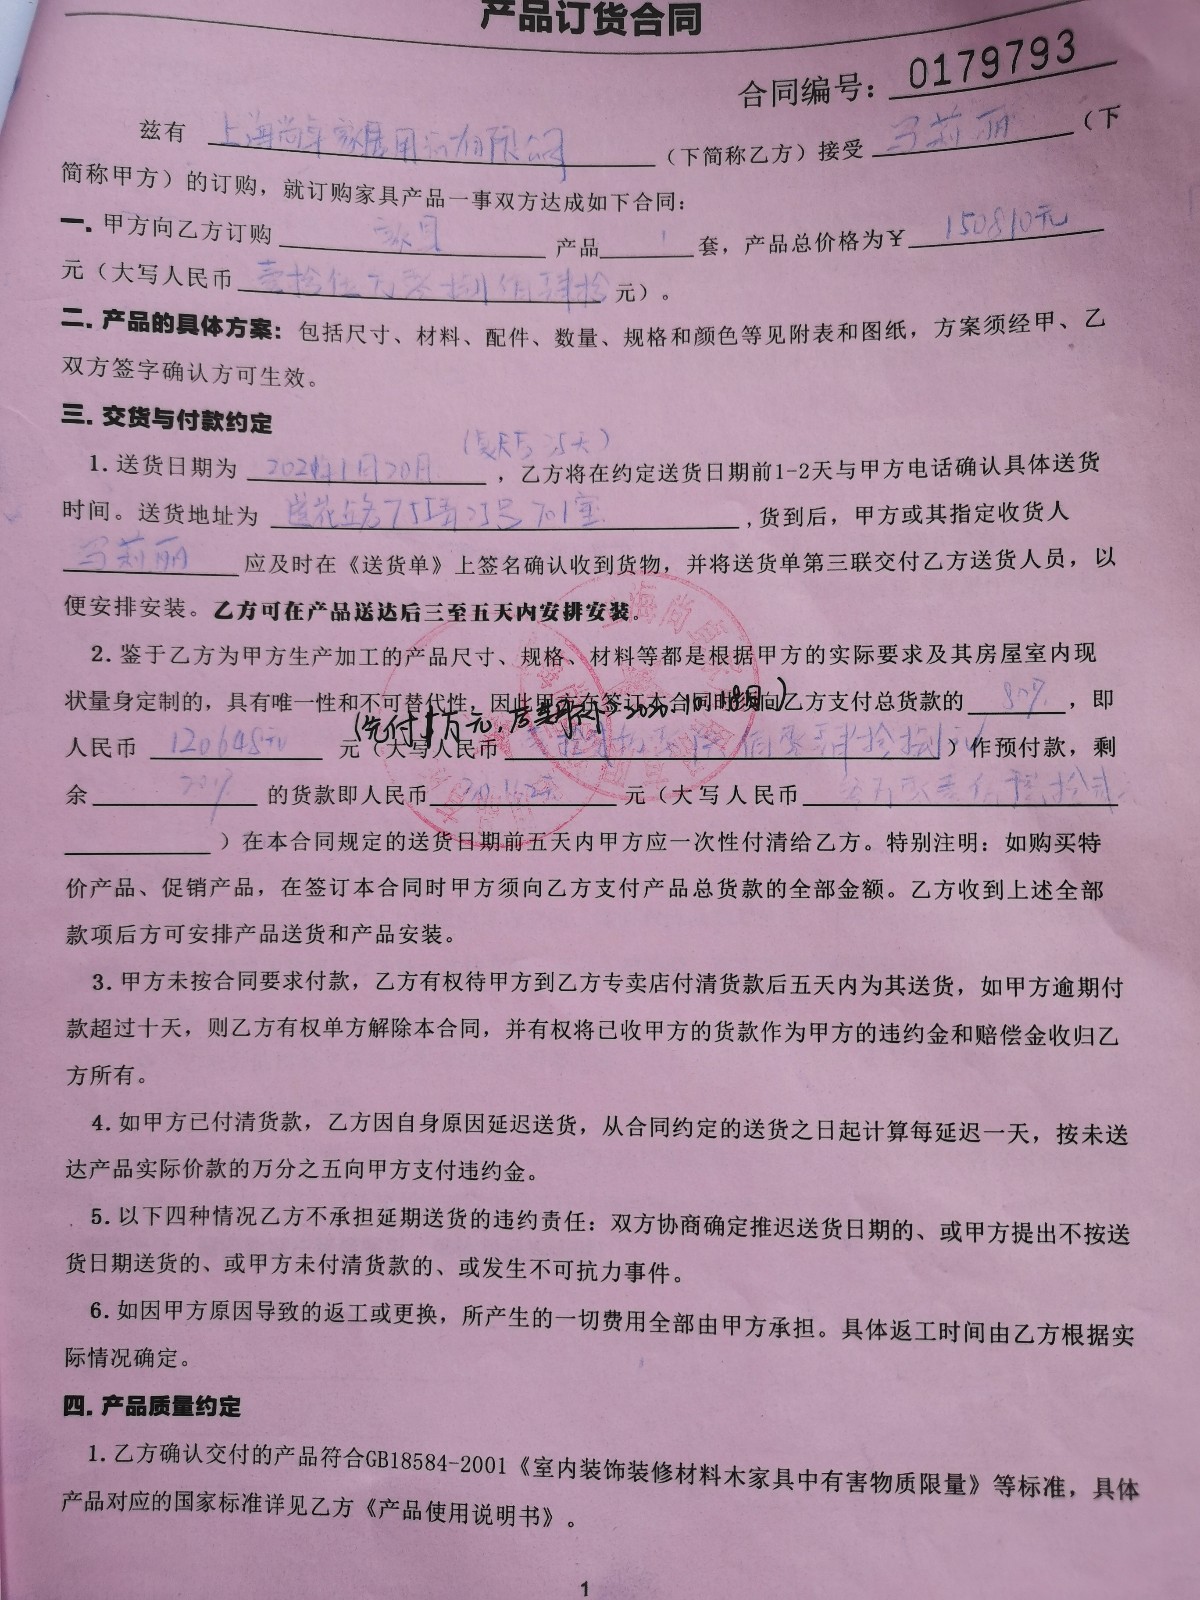 产品订货合同
合同编号：0179793
兹有 上海尚 家居用 有限公司 （下简称乙方）接受 马莉丽 （下
简称甲方）的订购，就订购家具产品一事双方达成如下合同：
一. 甲方向乙方订购 家具 产品 1 套，产品总价格为￥ 150810元
元（大写人民币 壹拾伍万零捌佰 拾 元）。
二. 产品的具体方案：包括尺寸、材料、配件、数量、规格和颜色等见附表和图纸，方案须经甲、乙
双方签字确认方可生效。
三. 交货与付款约定
1. 送货日期为 2021年1月20月 ，乙方将在约定送货日期前1-2天与甲方电话确认具体送货
时间。送货地址为 莲花 路755弄25号701室 ,货到后，甲方或其指定收货人
马莉丽 应及时在《送货单》上签名确认收到货物，并将送货单第三联交付乙方送货人员，以
便安排安装。乙方可在产品送达后三至五天内安排安装。
2. 鉴于乙方为甲方生产加工的产品尺寸、规格、材料等都是根据甲方的实际要求及其房屋室内现
状量身定制的，具有唯一性和不可替代性，因此甲方在签订本合同时须向乙方支付总货款的 80% ，即
(先付5万元, 2020.10.18月)
人民币 120648元 元（大写人民币 ）作预付款，剩
余 20% 的货款即人民币 元（大写人民币
）在本合同规定的送货日期前五天内甲方应一次性付清给乙方。特别注明：如购买特
价产品、促销产品，在签订本合同时甲方须向乙方支付产品总货款的全部金额。乙方收到上述全部
款项后方可安排产品送货和产品安装。
3. 甲方未按合同要求付款，乙方有权待甲方到乙方专卖店付清货款后五天内为其送货，如甲方逾期付
款超过十天，则乙方有权单方解除本合同，并有权将已收甲方的货款作为甲方的违约金和赔偿金收归乙
方所有。
4. 如甲方已付清货款，乙方因自身原因延迟送货，从合同约定的送货之日起计算每延迟一天，按未送
达产品实际价款的万分之五向甲方支付违约金。
5. 以下四种情况乙方不承担延期送货的违约责任：双方协商确定推迟送货日期的、或甲方提出不按送
货日期送货的、或甲方未付清货款的、或发生不可抗力事件。
6. 如因甲方原因导致的返工或更换，所产生的一切费用全部由甲方承担。具体返工时间由乙方根据实
际情况确定。
四. 产品质量约定
1. 乙方确认交付的产品符合GB18584-2001《室内装饰装修材料木家具中有害物质限量》等标准，具体
产品对应的国家标准详见乙方《产品使用说明书》。
1